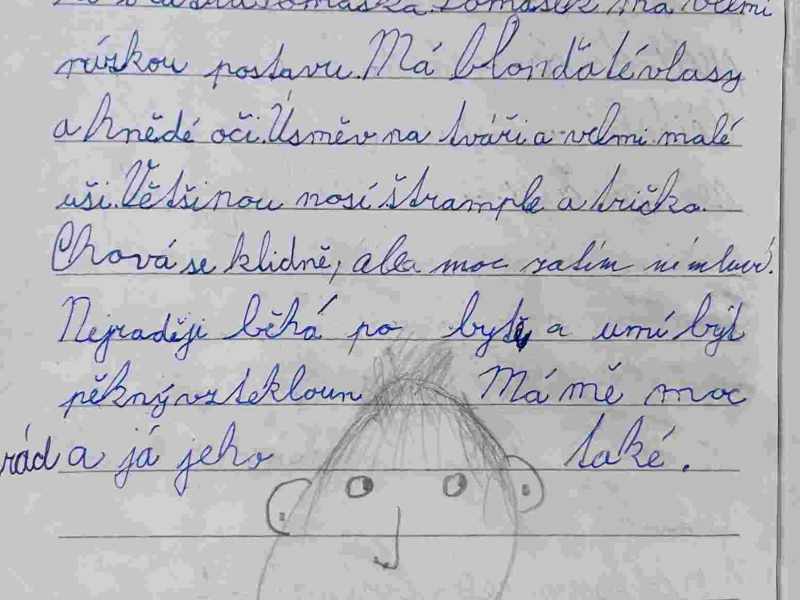 Tomášek má velmi
nízkou postavu. Má blonďaté vlasy
a hnědé oči. Úsměv na tváři a velmi malé
uši. Většinou nosí štrample a tričko.
Chová se klidně, ale moc zatím nemluví.
Nejraději běhá po bytě a umí být
pěkný vztekloun Má mě moc
rád a já jeho také.